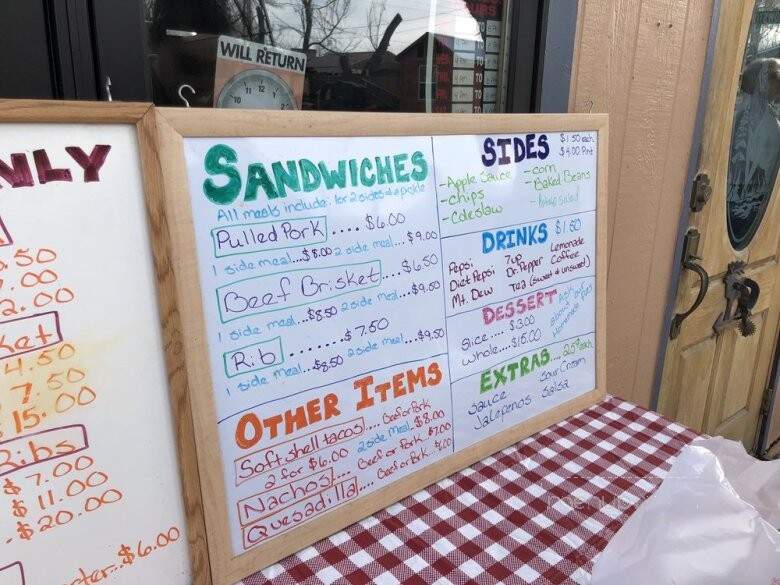 WILL RETURN
10 11 12
NLY
50
.00
2.00
ket
4.50
7.50
15.00
Ribs
$7.00
$11.00
$20.00
ter...$6.00
SANDWICHES
All meals include: 1or 2 sides & a pickle
Pulled Pork .... $6.00
1 side meal...$8.00 2 side meal...$9.00
Beef Brisket.... $6.50
1 side meal...$8.50 2 side meal...$9.50
Rib .......$7.50
1 side meal...$8.50 2 side meal...$9.50
OTHER ITEMS
Softshell tacos!.... Beef or Pork
2 for $6.00 2 side meal..$8.00
Nachos!... Beef or Pork $7.00
Quesadilla!.... Beef or Pork..
SIDES $1.50 each
$4.00 Pint
-Apple Sauce -corn
-chips -Baked Beans
-Coleslaw
DRINKS $1.50
Pepsi 7up Lemonade
Diet Pepsi Dr. Pepper Coffee
Mt. Dew Tea (sweet & unsweet)
DESSERT Ask about our Homemade Pies
Slice.... $3.00
Whole....$15.00
EXTRAS... 25¢ each
Sauce Sour Cream
Jalepenos Salsa